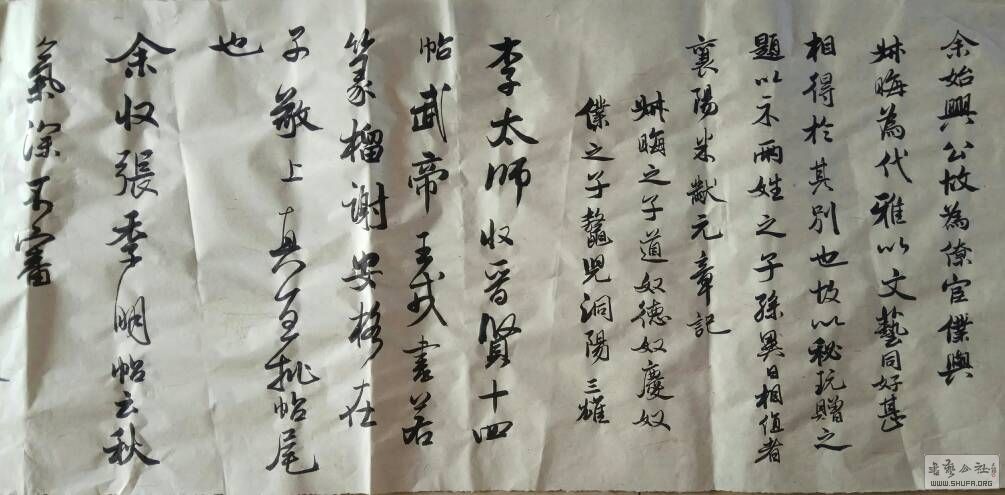 余始興公故為僚宦僕與
叔晦為代雅以文藝同好甚
相得於其別也故以秘玩贈之
題以示兩姓之子孫異日相值者
襄陽米黻元章記
叔晦之子道奴德奴慶奴
僕之子鼇児洞陽三雄
李太師收晉賢十四
帖武帝王戎書若
篆籀謝安格在
子敬上真宜批帖尾
也
余收張季明帖云秋
氣深不審
WWW.SHUFA.ORG